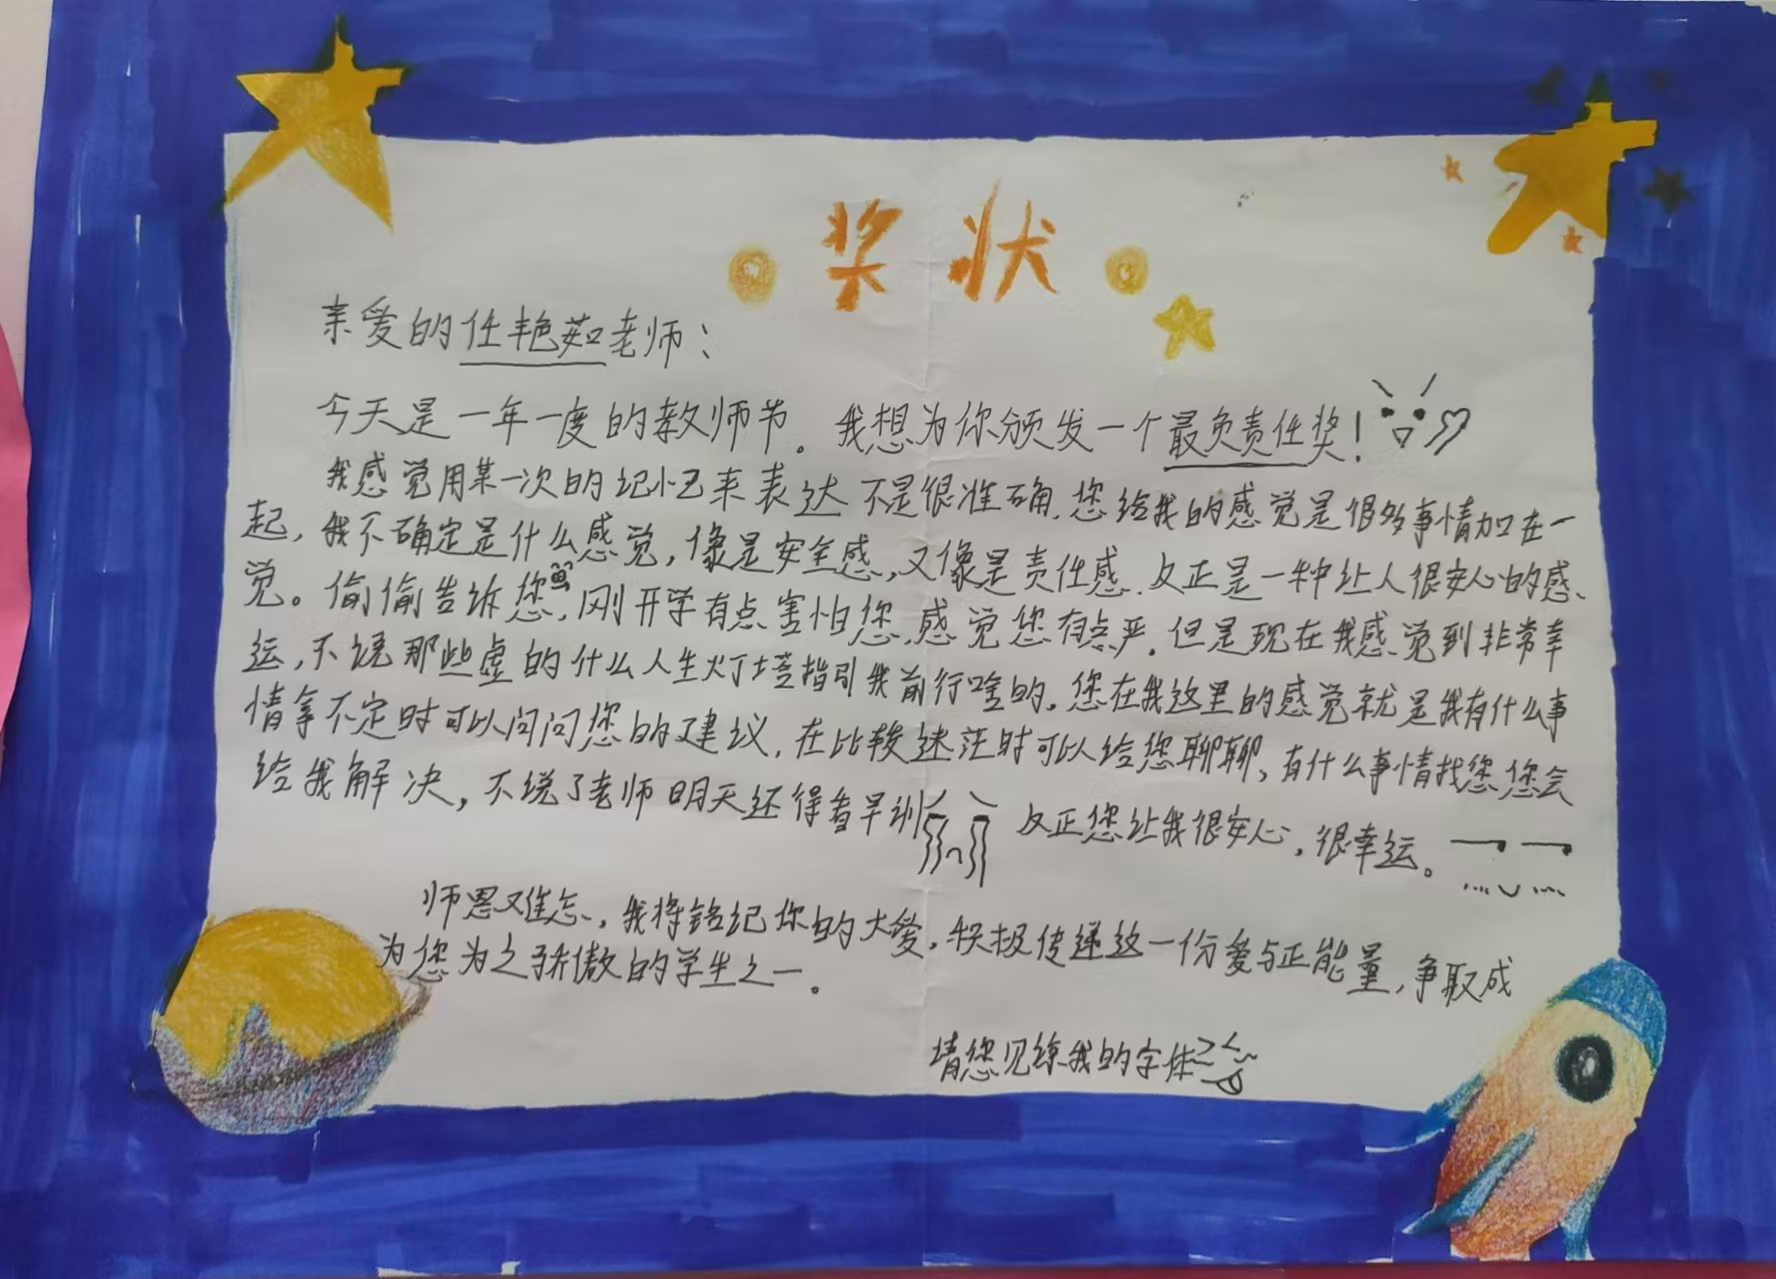 奖状
亲爱的任艳茹老师：
今天是一年一度的教师节。我想为你颁发一个最负责任奖！
我感觉用某一次的记忆来表达不是很准确，您给我的感觉是很多事情加在一
起，我不确定是什么感觉，像是安全感，又像是责任感，反正是一种让人很安心的感
觉。偷偷告诉您，刚开学有点害怕您，感觉您有点严。但是现在我感觉到非常幸
运，不说那些虚的什么人生灯塔指引我前行啥的。您在我这里的感觉就是我有什么事
情拿不定时可以问问您的建议，在比较迷茫时可以给您聊聊，有什么事情找您您会
给我解决，不说了老师明天还得看早训 反正您让我很安心，很幸运。
师恩难忘，我将铭记你的大爱，积极传递这一份爱与正能量，争取成
为您为之骄傲的学生之一。
请您见谅我的字体